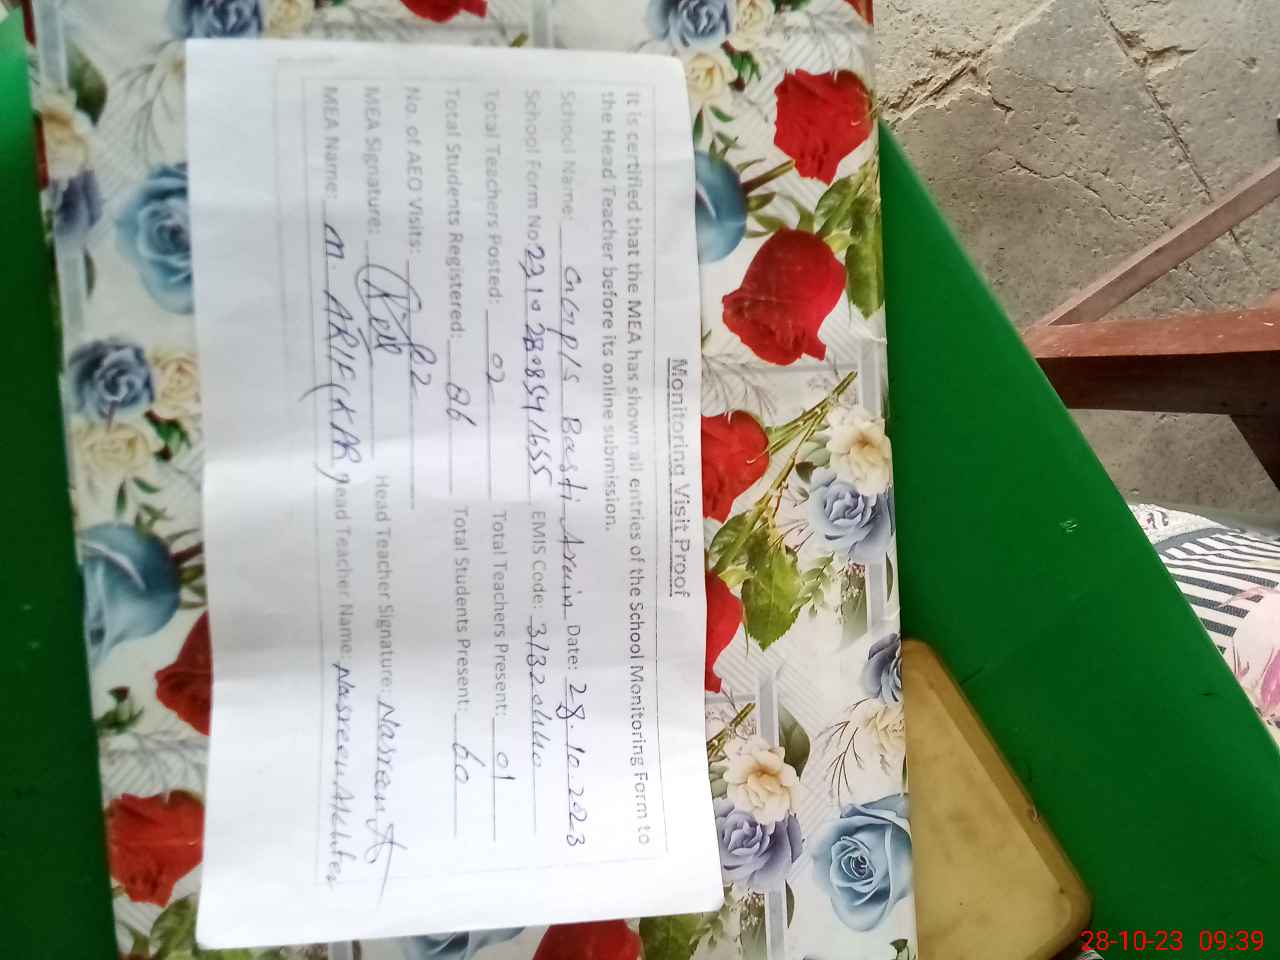 Monitoring Visit Proof
It is certified that the MEA has shown all entries of the School Monitoring Form to
the Head Teacher before its online submission.
School Name: GGP/S Basti Arain Date: 28.10.2023
School Form No: 23102808541655 EMIS Code:
Total Teachers Posted: 02 Total Teachers Present: 01
Total Students Registered: 86 Total Students Present: 60
No. of AEO Visits: 02
MEA Signature: Head Teacher Signature: Nasreen A
MEA Name: M. ARIF (KAR) Head Teacher Name: Nasreen Akhter
28-10-23 09:39